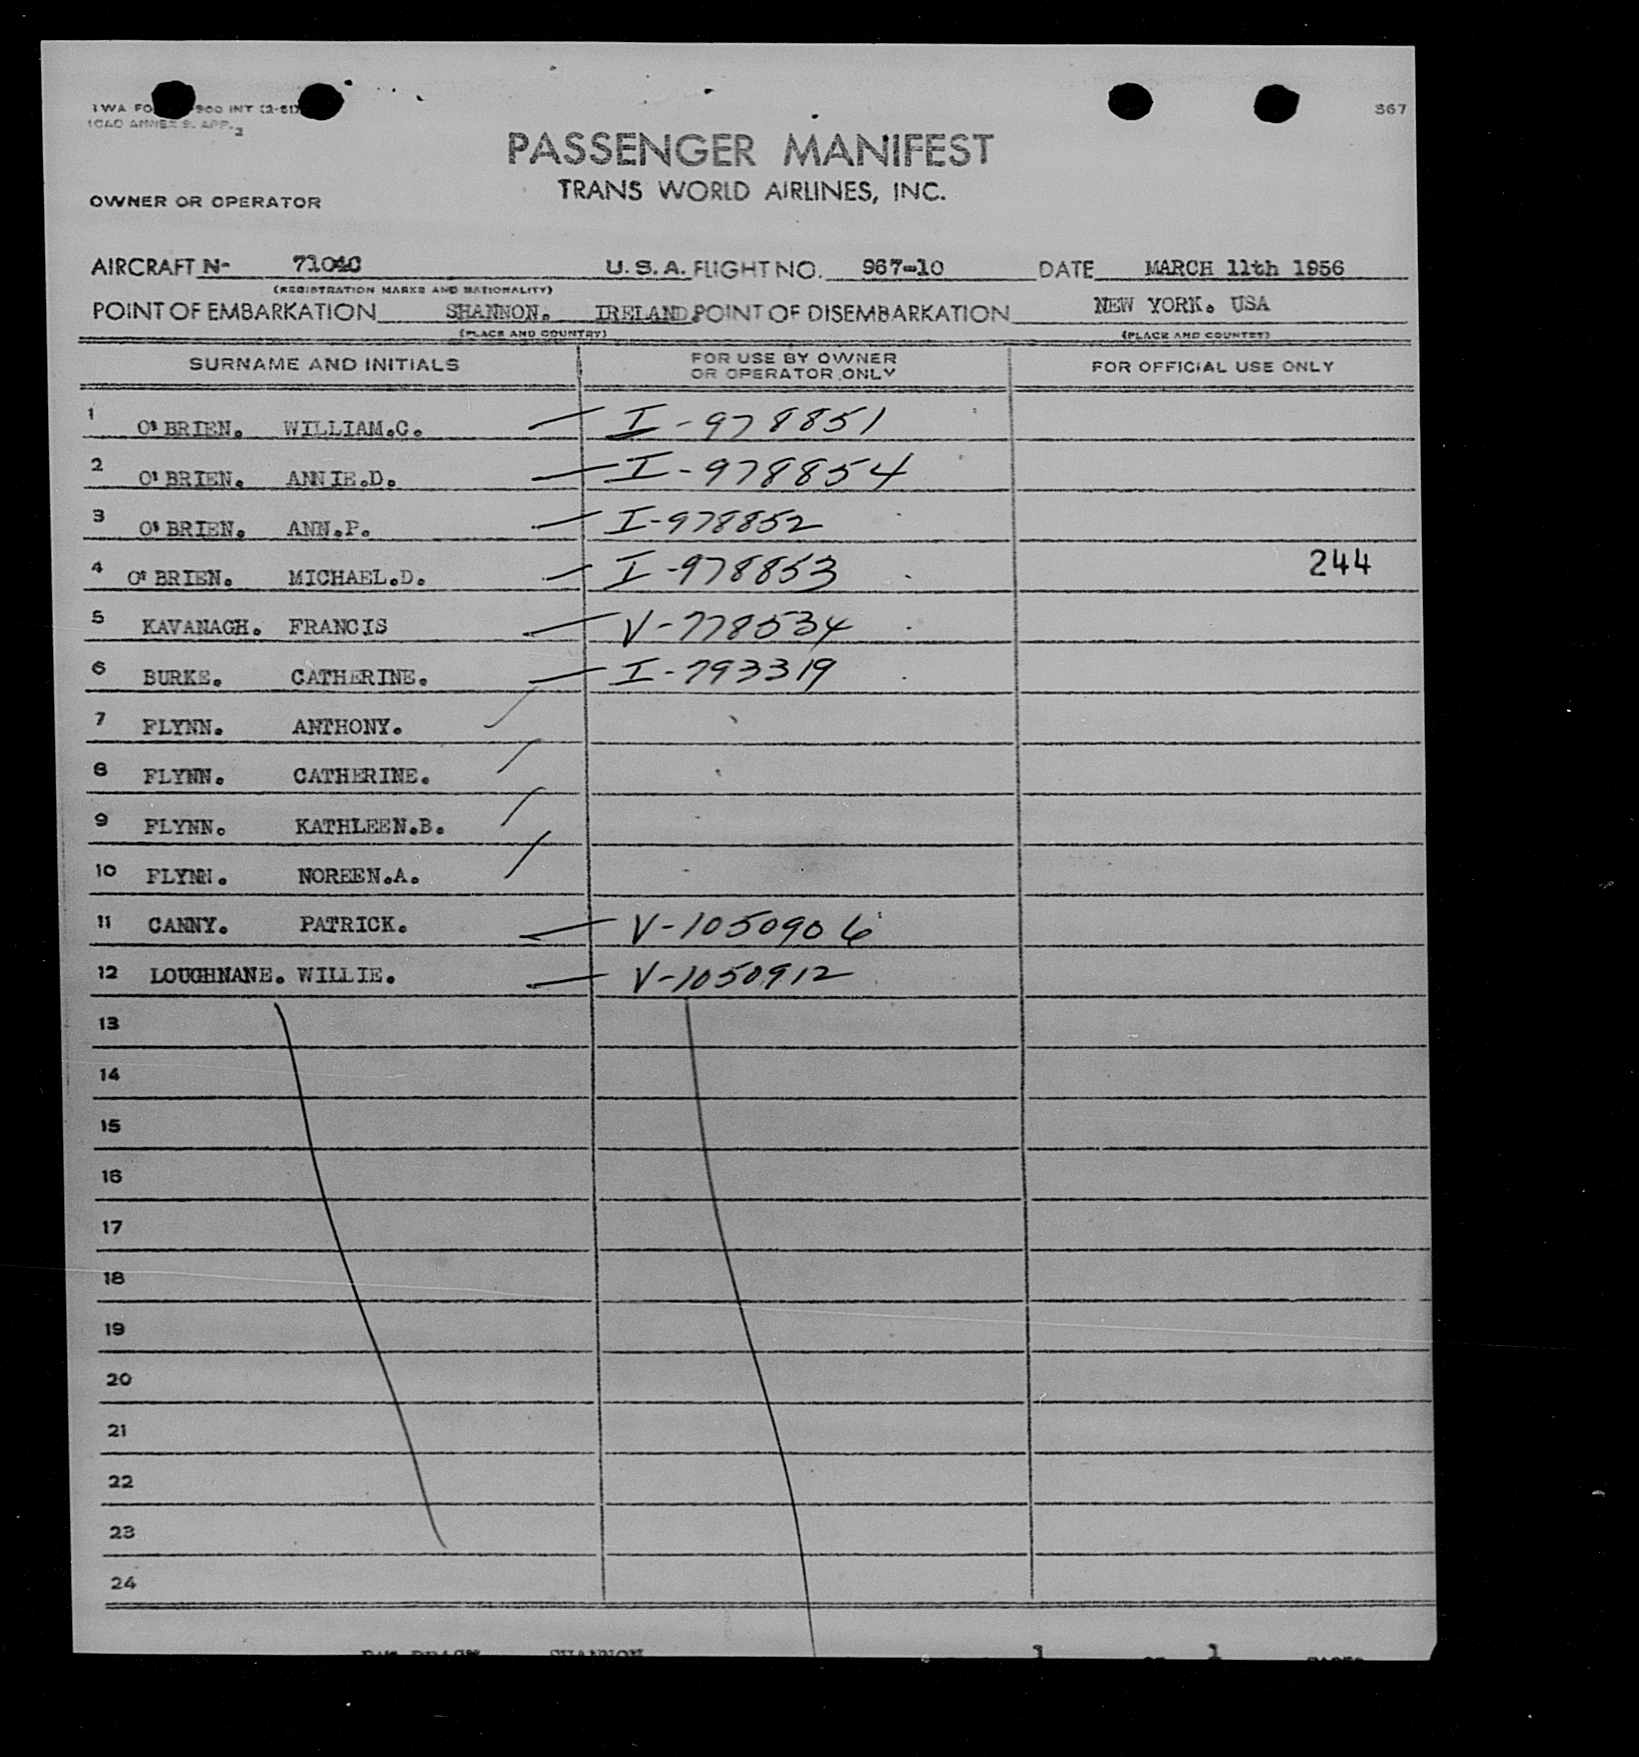 367
PASSENGER MANIFEST
TRANS WORLD AIRLINES, INC.
OWNER OR OPERATOR
AIRCRAFT N- U.S.A. FLIGHT NO. 967-10 DATE MARCH 11th 1956
(REGISTRATION MARKS AND NATIONALITY)
POINT OF EMBARKATION SHANNON. IRELAND. POINT OF DISEMBARKATION NEW YORK. USA
(PLACE AND COUNTRY) (PLACE AND COUNTRY)
SURNAME AND INITIALS FOR USE BY OWNER OR OPERATOR ONLY FOR OFFICIAL USE ONLY
1 O'BRIEN. WILLIAM.C. I-978851
2 O'BRIEN. ANNIE.D. I-978854
3 O'BRIEN. ANN.P. I-978852
4 O'BRIEN. MICHAEL.D. I-978853 244
5 KAVANAGH. FRANCIS V-778534
6 BURKE. CATHERINE. I-793319
7 FLYNN. ANTHONY.
8 FLYNN. CATHERINE.
9 FLYNN. KATHLEEN.B.
10 FLYNN. NOREEN.A.
11 CANNY. PATRICK. V-1050906
12 LOUGHNANE. WILLIE. V-1050912
13
14
15
16
17
18
19
20
21
22
23
24